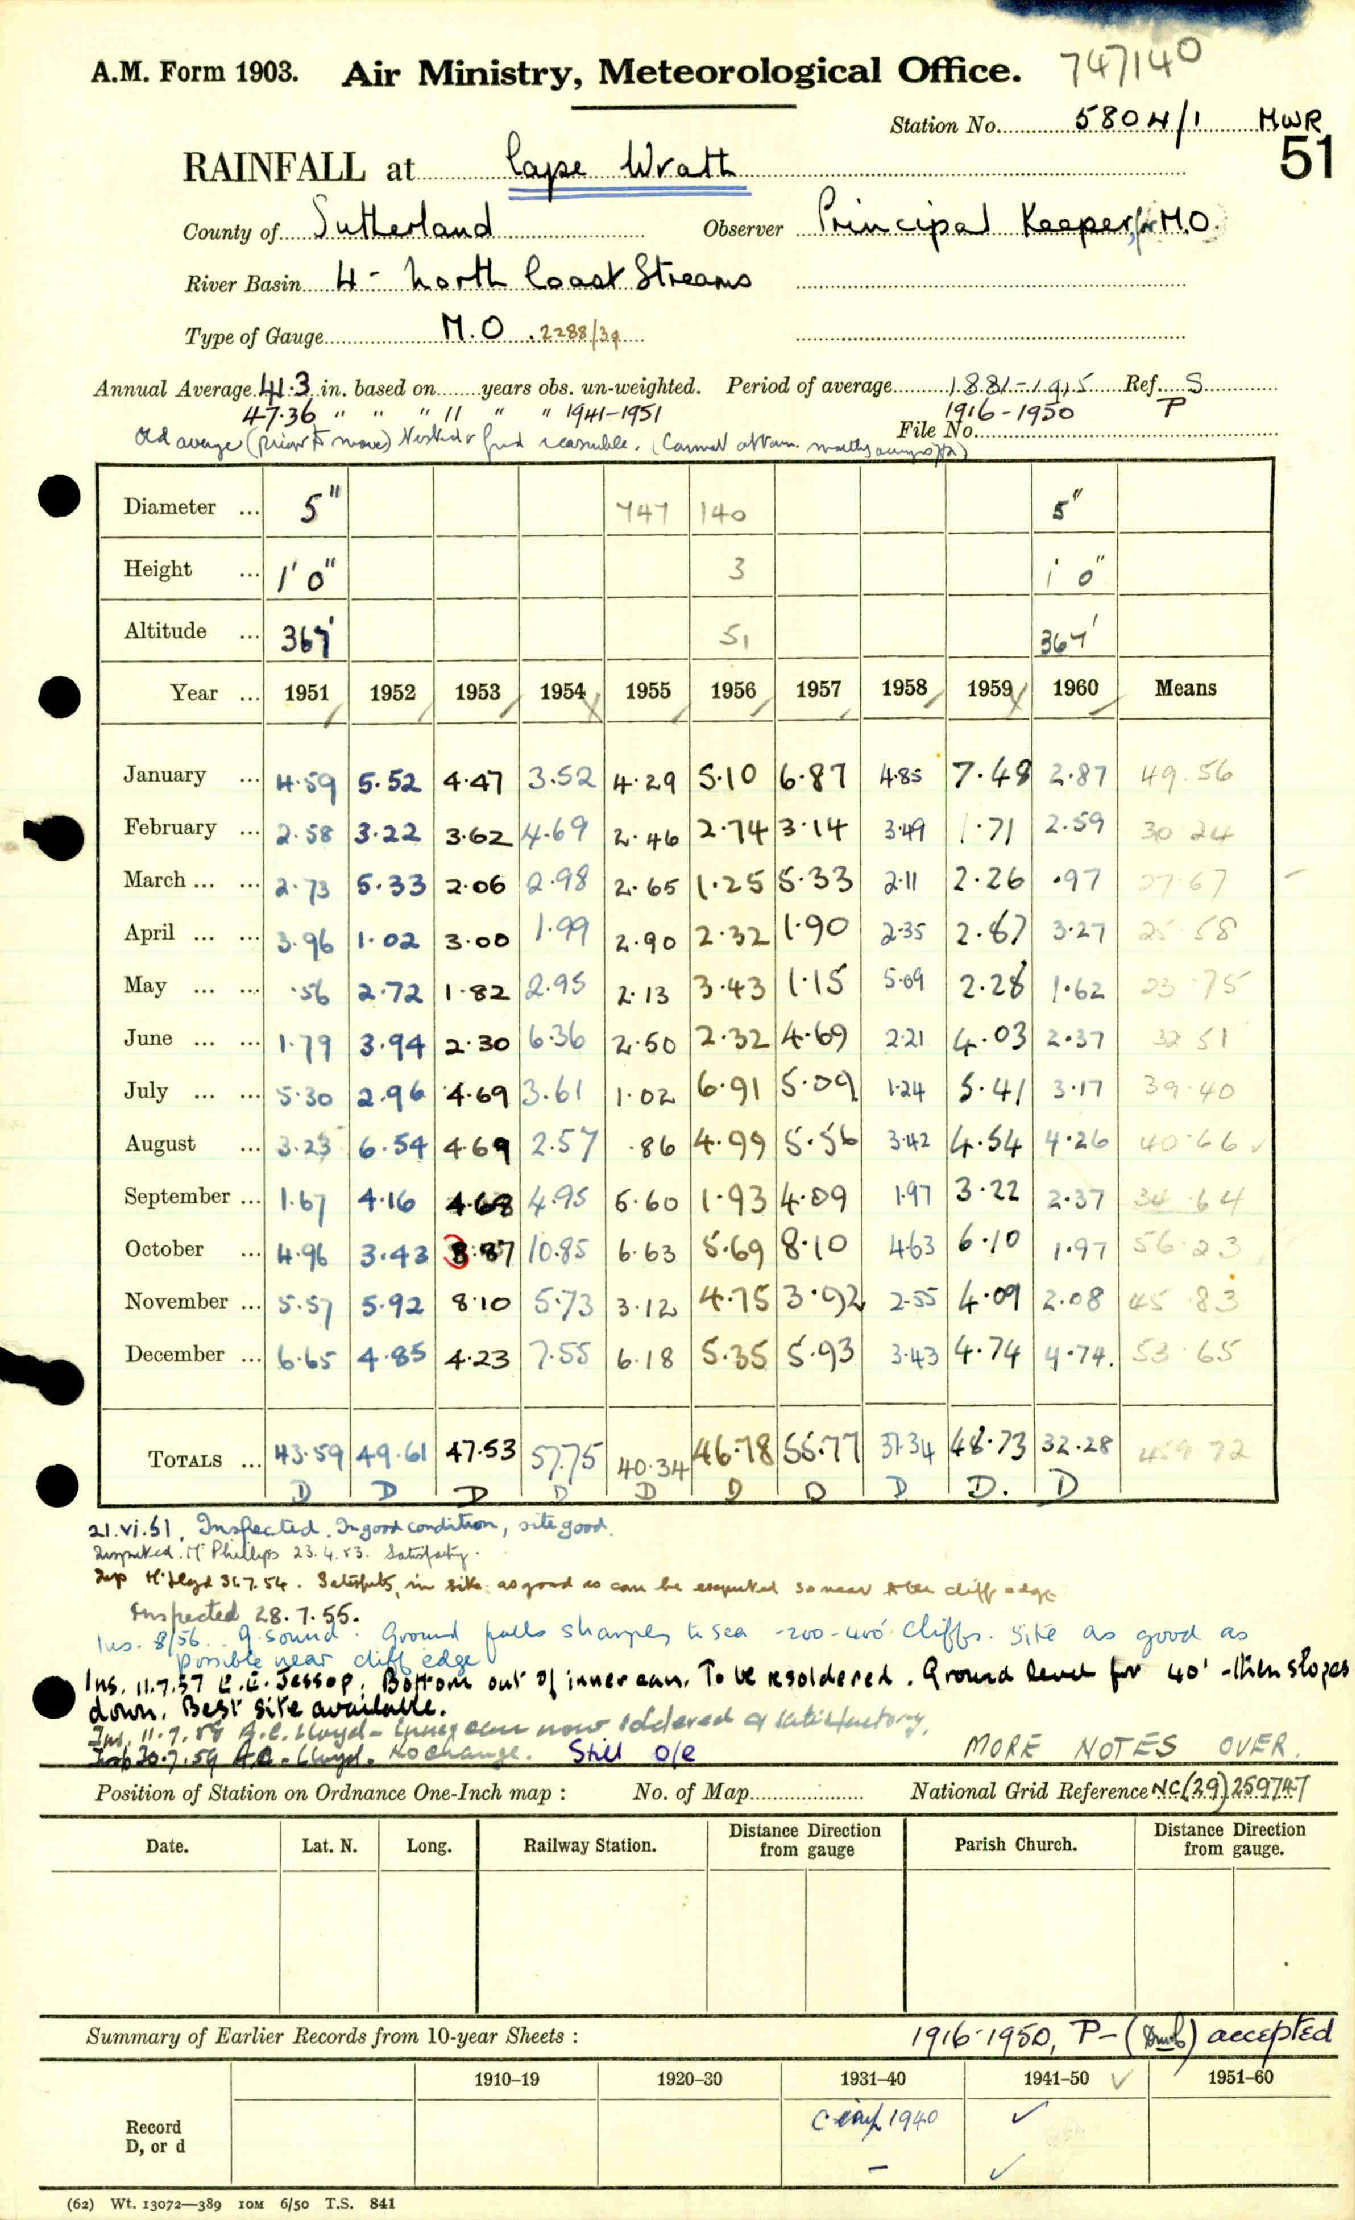 747140
A.M. Form 1903. Air Ministry, Meteorological Office.
Station No. 5804/1 MWR
51
RAINFALL at Cape Wrath
County of Sutherland Observer Principal Keeper, for M.O
River Basin 4 - North Coast Streams
Type of Gauge M.O. 2288/39
Annual Average 41.3 in. based on years obs. un-weighted. Period of average 1881-1915 Ref. S
47.36 " " " 11 " " 1941-1951 1916-1950 P
File No.
Old average (prior to move)
Diameter ... 5" 747 140 5"
Height ... 1' 0" 3 1' 0"
Altitude ... 367' 51 367'
Year ... 1951 1952 1953 1954 1955 1956 1957 1958 1959 1960 Means
January ... 4.59 5.52 4.47 3.52 4.29 5.10 6.87 4.85 7.48 2.87 49.56
February ... 2.58 3.22 3.62 4.69 2.46 2.74 3.14 3.49 1.71 2.59 30 24
March ... ... 2.73 5.33 2.06 2.98 2.65 1.25 5.33 2.11 2.26 .97 27.67
April ... ... 3.96 1.02 3.00 1.99 2.90 2.32 1.90 2.35 2.87 3.27 25.58
May ... ... .56 2.72 1.82 2.95 2.13 3.43 1.15 5.09 2.28 1.62 23.75
June ... ... 1.79 3.94 2.30 6.36 2.50 2.32 4.69 2.21 4.03 2.37 32 51
July ... ... 5.30 2.96 4.69 3.61 1.02 6.91 5.09 1.24 5.41 3.17 39.40
August ... 3.23 6.54 4.69 2.57 .86 4.99 5.56 3.42 4.54 4.26 40.66
September ... 1.67 4.16 4.68 4.95 5.60 1.93 4.09 1.97 3.22 2.37 34 64
October ... 4.96 3.43 3.87 10.85 6.63 5.69 8.10 4.63 6.10 1.97 56.23
November ... 5.57 5.92 8.10 5.73 3.12 4.75 3.92 2.55 4.09 2.08 45.83
December ... 6.65 4.85 4.23 7.55 6.18 5.35 5.93 3.43 4.74 4.74. 53.65
TOTALS ... 43.59 49.61 47.53 57.75 40.34 46.78 55.77 37.34 48.73 32.28 459 72
D D D D D D D D D. D
21.vi.51. Inspected. In good condition, site good.
Inspected. Mr Phillips 23.4.53. Satisfactory.
Insp Mr Lloyd 31.7.54. Satisfactory, in site as good as can be expected so near the cliff edge
Inspected 28.7.55.
Ins. 8/56. G. sound. Ground falls sharply to sea -200-400' cliffs. Site as good as
possible near cliff edge
Ins. 11.7.57 E.E. Jessop. Bottom out of inner can. To be resoldered. Ground level for 40' - then slopes
down. Best site available.
Ins. 11.7.58 A.C. Lloyd - Inner can now soldered & satisfactory.
Insp 30.7.59 A.C. Lloyd. No change. Still o/e MORE NOTES OVER.
Position of Station on Ordnance One-Inch map : No. of Map National Grid Reference NC(29)259747
Date. Lat. N. Long. Railway Station. Distance Direction from gauge Parish Church. Distance Direction from gauge.
Summary of Earlier Records from 10-year Sheets : 1916-1950, P- accepted
1910–19 1920–30 1931–40 1941–50 ✓ 1951–60
Record 1940 ✓
D, or d – ✓
(62) Wt. 13072—389 10M 6/50 T.S. 841